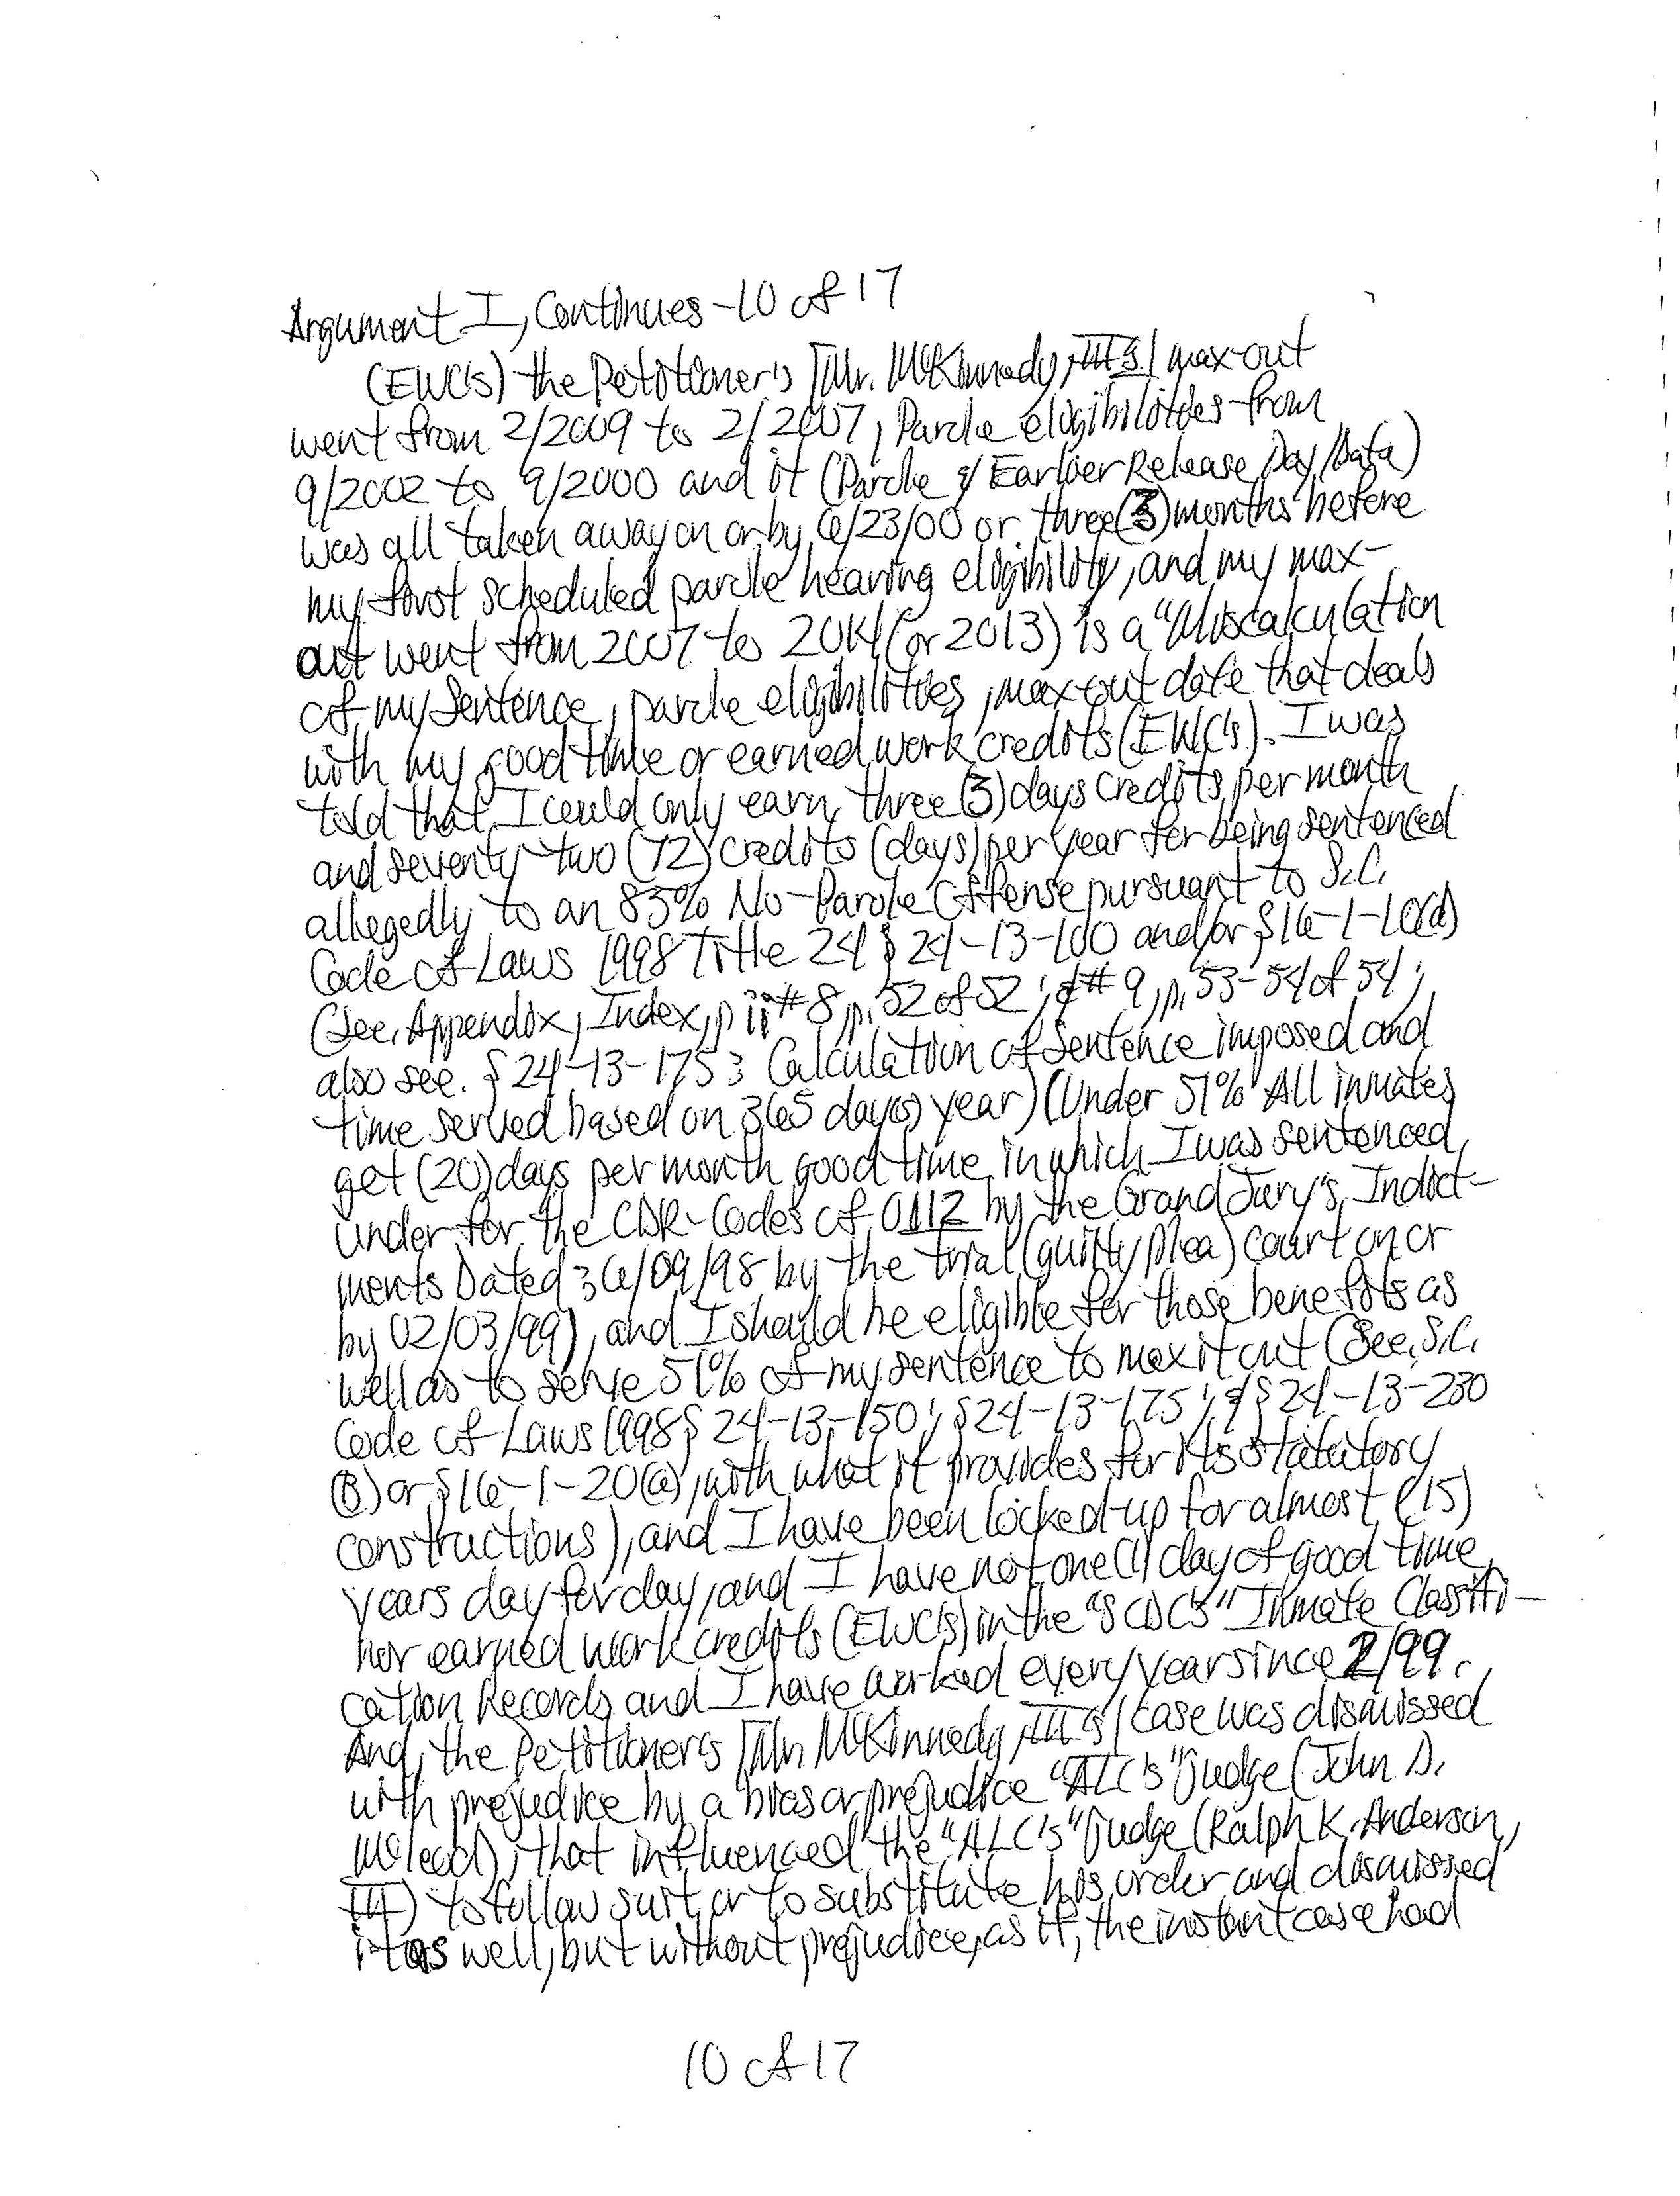 Argument I, Continues - 10 of 17
(EWC's) the Petitioner's [Mr. McKinnedy, III's] max-out
went from 2/2009 to 2/2007, Parole eligibilities from
9/2002 to 9/2000 and it (Parole & Earlier Release Day/Data)
was all taken away on or by 6/23/00 or three (3) months before
my first scheduled parole hearing eligibility, and my max-
out went from 2007 to 2014 (or 2013) is a "Miscalculation
of my Sentence, parole eligibilities, max-out date that deals
with my good time or earned work credits (EWC's). I was
told that, I could only earn three (3) days credits per month
and seventy-two (72) credits (days) per year for being sentenced
allegedly to an 85% No-Parole Offense pursuant to S.C.
Code of Laws 1998 Title 24 § 24-13-100 and/or § 16-1-10(d)
(See, Appendix, Index, p ii #8, p. 52 of 52; & #9, p. 53-54 of 54;
also see. § 24-13-175: Calculation of Sentence imposed and
time served based on 365 day(s) year) (Under 51% All inmates
get (20) days per month good time in which I was sentenced
under for the CDR-Codes of 0112 by the Grand Jury's Indict-
ments Dated: 6/09/98 by the trial (guilty plea) court on or
by 02/03/99), and I should be eligible for those benefits as
well as to serve 51% of my sentence to max it out (See, S.C.
Code of Laws 1998 § 24-13-150; § 24-13-175; & § 24-13-230
(B) or § 16-1-20(a), with what it provides for its statutory
constructions), and I have been locked-up for almost (15)
years day for day, and I have not one (1) day of good time
nor earned work credits (EWC's) in the "SCDC's" Inmate Classifi-
cation Records and I have worked every year since 2/99.
And, the Petitioner's [Mr. McKinnedy, III's] case was dismissed
with prejudice by a bias or prejudice "ALC's" judge (John D.
McLeod), that influenced the "ALC's" judge (Ralph K. Anderson,
III) to follow suit or to substitute his order and dismissed
it as well, but without prejudice, as if, the instant case had
10 of 17